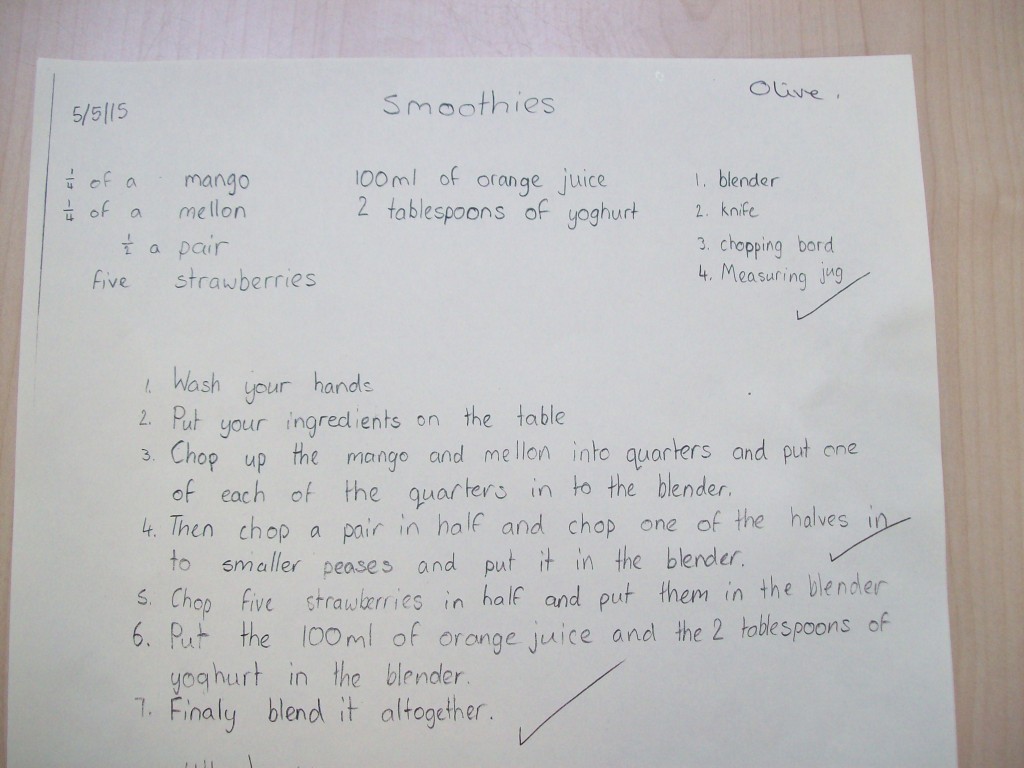 5/5/15
Smoothies
Olive.
1/4 of a mango
1/4 of a mellon
1/2 a pair
five strawberries
100ml of orange juice
2 tablespoons of yoghurt
1. blender
2. knife
3. chopping bord
4. Measuring jug
1. Wash your hands
2. Put your ingredients on the table
3. Chop up the mango and mellon into quarters and put one
of each of the quarters in to the blender.
4. Then chop a pair in half and chop one of the halves in
to smaller peases and put it in the blender.
5. Chop five strawberries in half and put them in the blender
6. Put the 100ml of orange juice and the 2 tablespoons of
yoghurt in the blender.
7. Finaly blend it altogether.